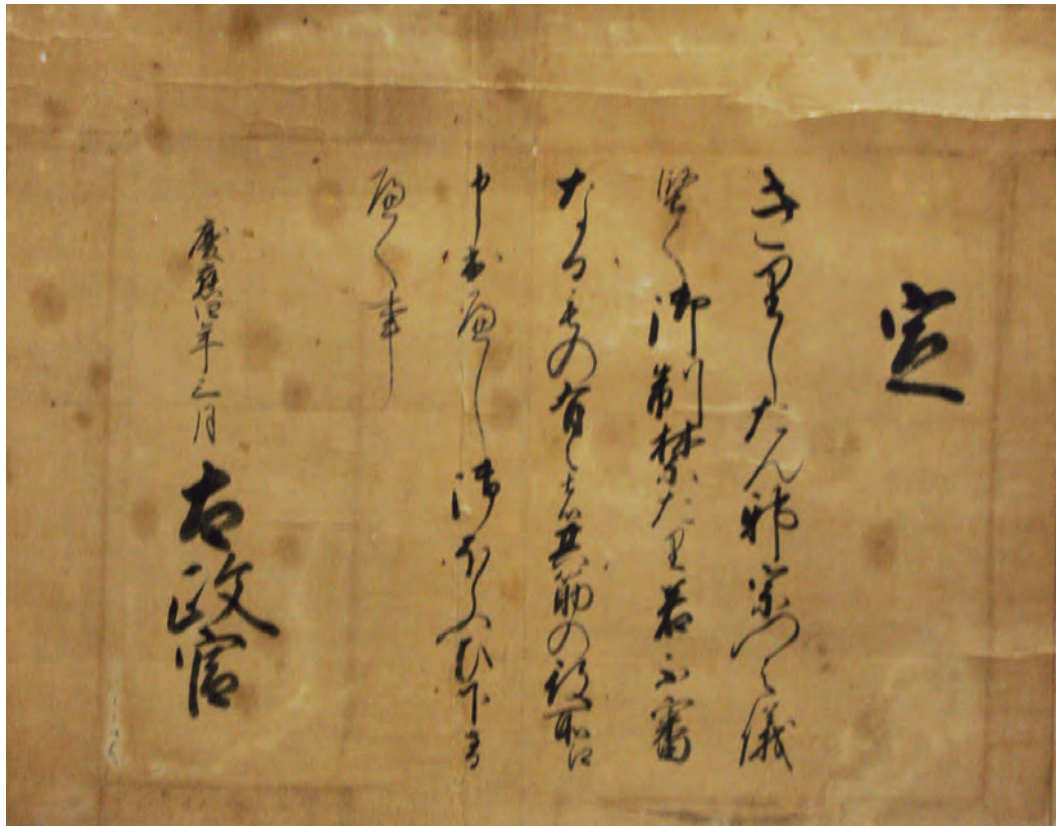 定
きりしたん邪宗門之儀
堅く御制禁たり若不審
なるもの有之者其筋の役所江
申出へし御ほうひ下さる
へく事
慶應四年三月 太政官